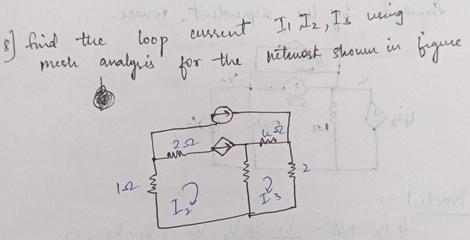 8] find the loop current I₁ I₂, I₃ using
mesh analysis for the netwost shown in figure
2Ω
4Ω
1Ω
2
I₂
I₃